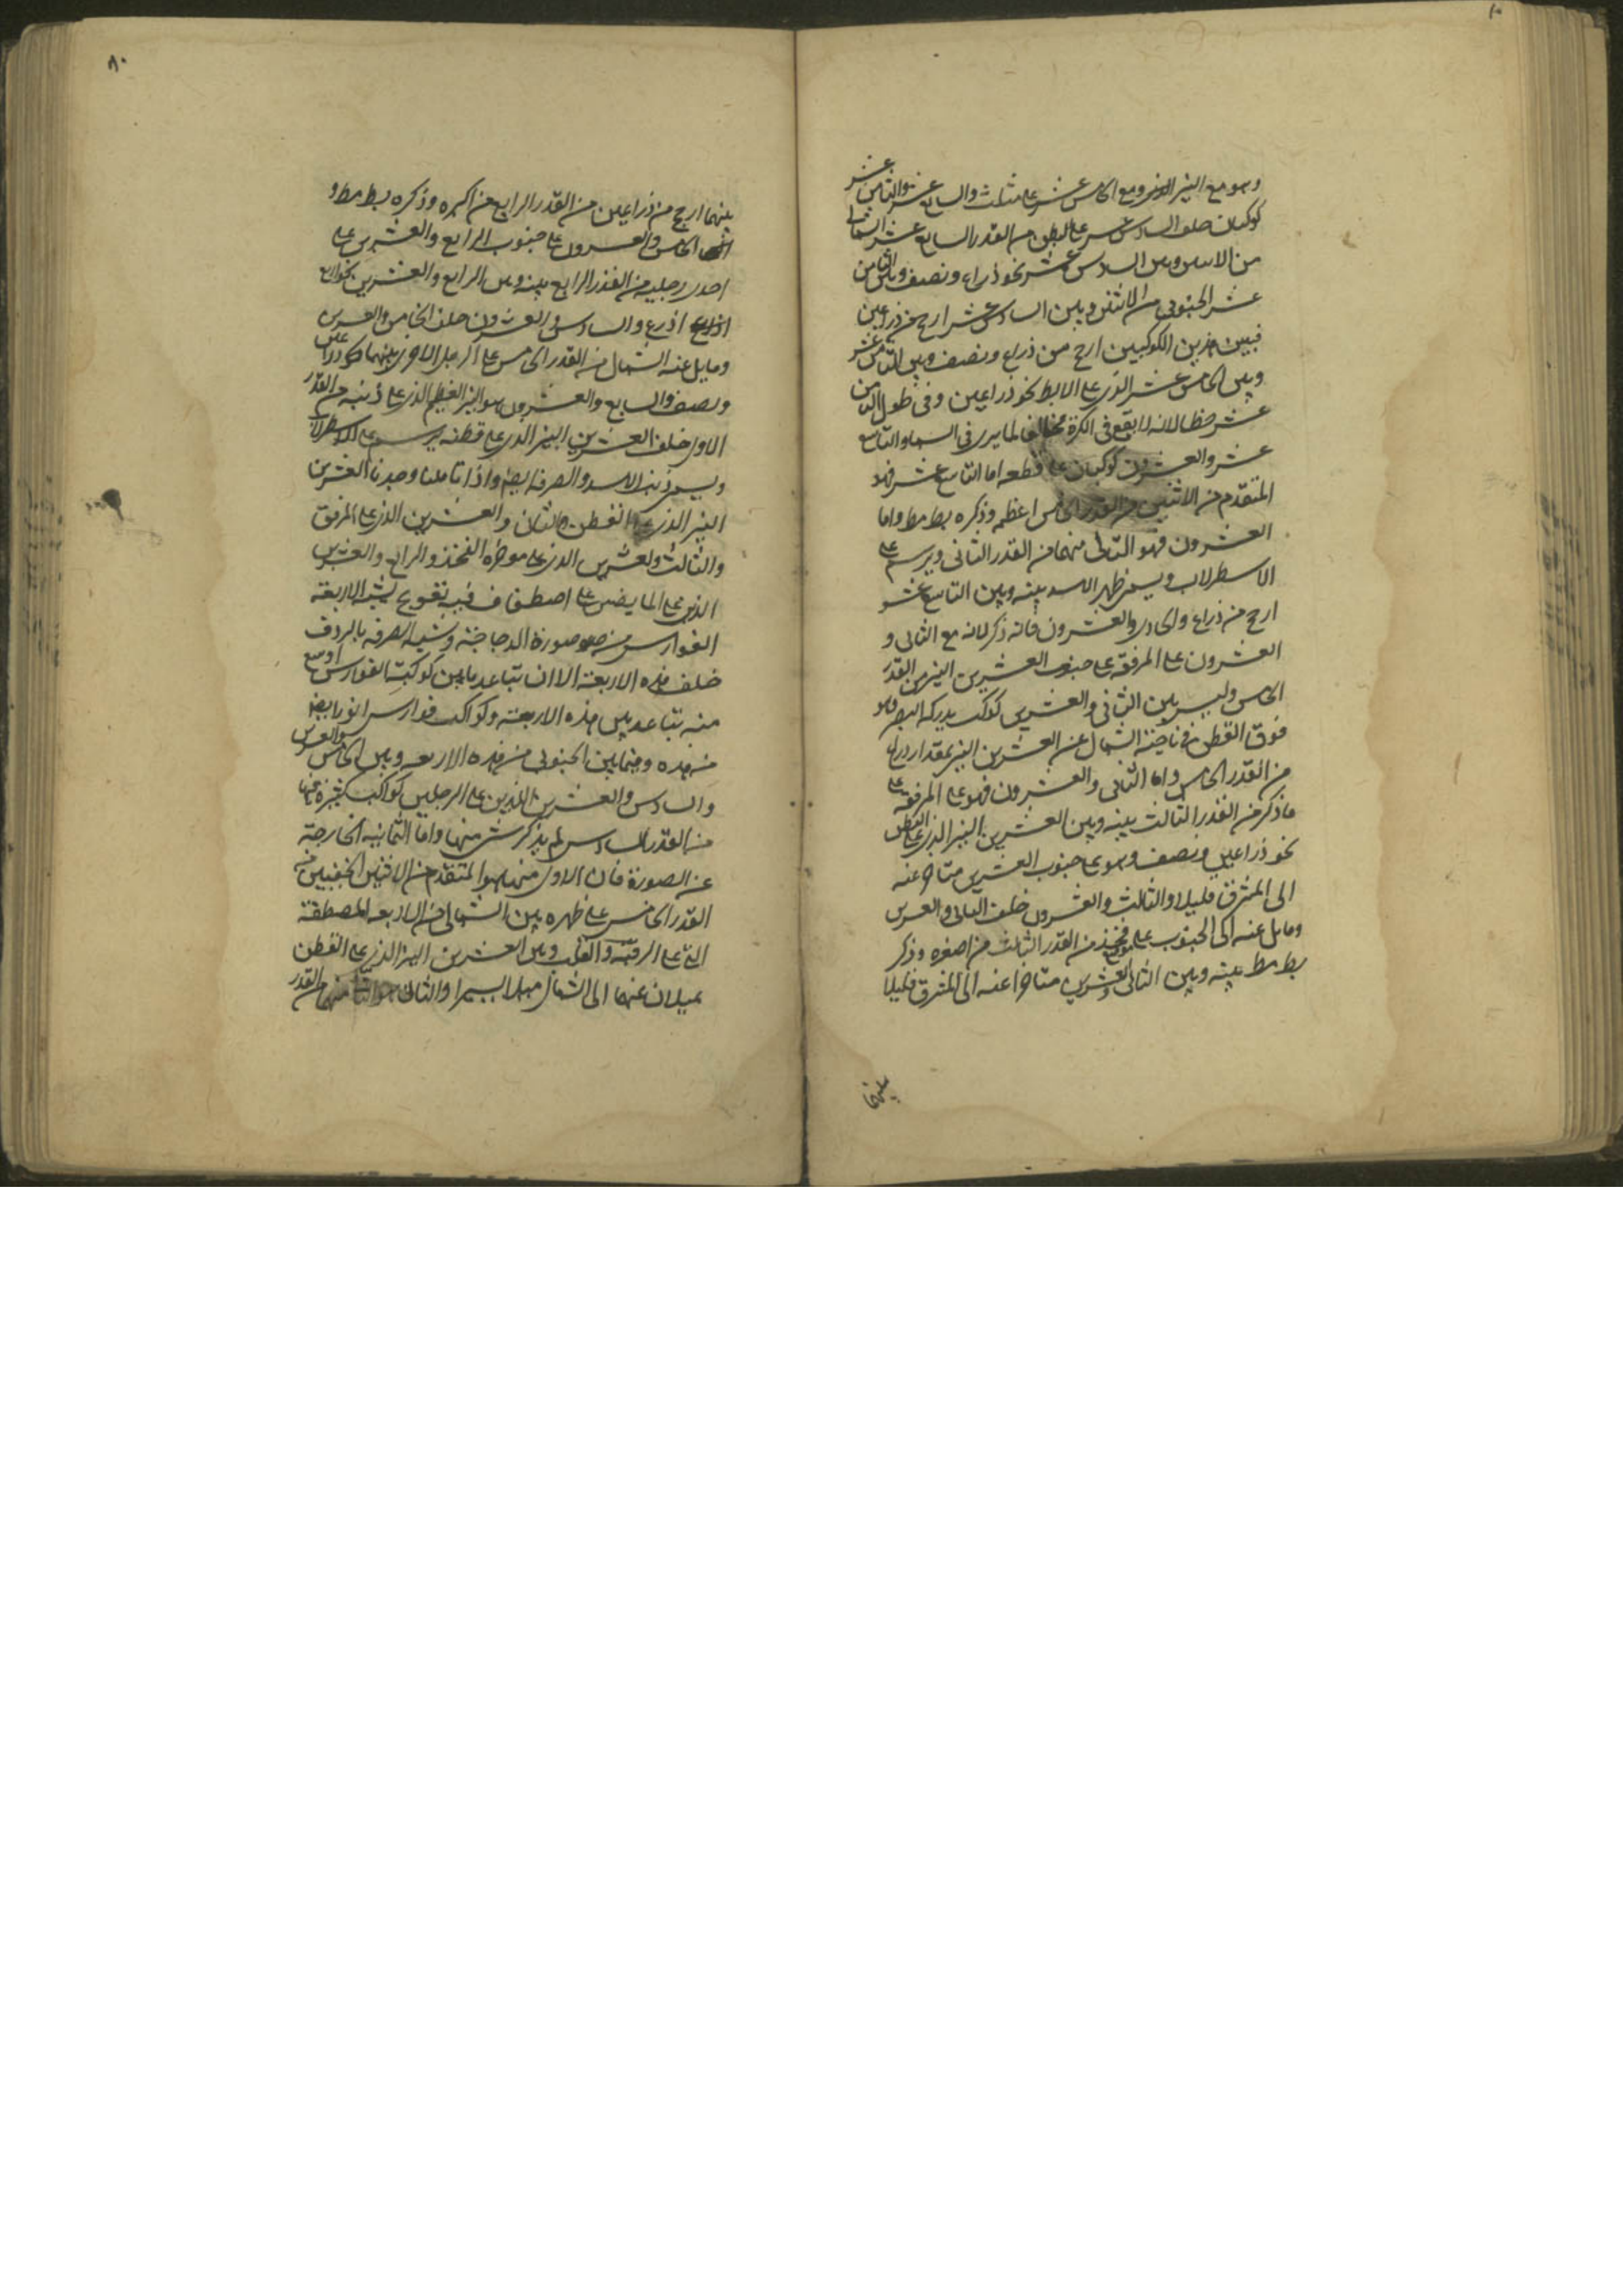 وهو مع النير الذى ومع الخامس عشر على مثلث والسابع عشر والثامن عشر
كوكبان خلف السادس عشر على البطن من القدر السابع عشر الشمالى
من الاثنين وبين السادس عشر نحو ذراع ونصف وبين الثامن
عشر الجنوبى من الاثنين وبين السادس عشر ارجح من ذراعين
فبين هذين الكوكبين ارجح من ذراع ونصف وبين الثامن عشر
وبين الخامس عشر الذى على الابط نحو ذراعين وفى طول الثامن
عشر خطا لانه لا يقع فى الكرة مخالفا لما يرى فى السما والتاسع
عشر والعشرون كوكبان على قطعه اما التاسع عشر فهو
المتقدم من الاثنين من القدر الخامس اعظمه وذكره بطلميوس واما
العشرون فهو التالى منهما من القدر الثانى ويرسم على
الاسطرلاب ويسمى ظهر الاسد بينه وبين التاسع عشر
ارجح من ذراع والحادى والعشرون فانه ذكر لانه مع الثانى و
العشرون على المرفقة على جنوب العشرين النير من القدر
الخامس وليس بين الثانى والعشرين كوكب يدركه البصر
فوق القطن فى ناحية الشمال عن العشرين النير بمقدار ذراع
من القدر الخامس واما الثانى والعشرون فهو على المرفقة على
ما ذكر من القدر الثالث بينه وبين العشرين النير الذى على القطن
نحو ذراعين ونصف وهو على جنوب العشرين متاخر عنه
الى المشرق قليلا والثالث والعشرون خلف الثانى والعشرين
ومايل عنه الى الجنوب على فخذ من القدر الثالث من اصغره وذكر
بط مط بينه وبين الثانى والعشرين متاخرا عنه الى المشرق قليلا
بينهما
٨٠
بينهما ارجح من ذراعين من القدر الرابع من اكبره وذكره بط مط و
الخامس والعشرون على جنوب الرابع والعشرين على
احدى رجليه من القدر الرابع بينه وبين الرابع والعشرين نحو اربع
اذرع والسادس والعشرون خلف الخامس والعشرين
ومايل عنه الشمال من القدر الخامس على الرجل الاخرى بينهما نحو ذراعين
ونصف والسابع والعشرون هو النير العظيم الذى على ذنبه من القدر
الاول خلف العشرين النير الذى على قطنه يرسم على الاسطرلاب
ويسمى ذنب الاسد والصرفة ايضا واذا تاملنا وجدنا العشرين
النير الذى على القطن والثانى والعشرين الذى على المرفق
والثالث والعشرين الذى على موخره الفخذ والرابع والعشرين
الذى على المايضين على اصطفاف فيه تقويم يشبه الاربعة
الفوارس من صورة الدجاجة وشبه الصرفة بالردف
خلف هذه الاربعة الا ان تباعد ما بين كوكبة الفوارس اوسع
منه تباعد بين هذه الاربعة وكواكب فوارس انور ايضا
من هذه وفيما بين الجنوبى من هذه الاربعه وبين الخامس والعشرين
والسادس والعشرين اللذين على الرجلين كواكب كثيرة فيها
من القدر السادس لم يذكر شى منها واما الثمانية الخارجة
عن الصورة فان الاول منها هو المتقدم من الاثنين الخفيين من
القدر الخامس على ظهره بين الشمالى من الاربعه المصطفة
التى على الرقبة والقلب وبين العشرين النير الذى على القطن
يميلان عنهما الى الشمال ميلا يسيرا والثانى هو التالى منهما من القدر